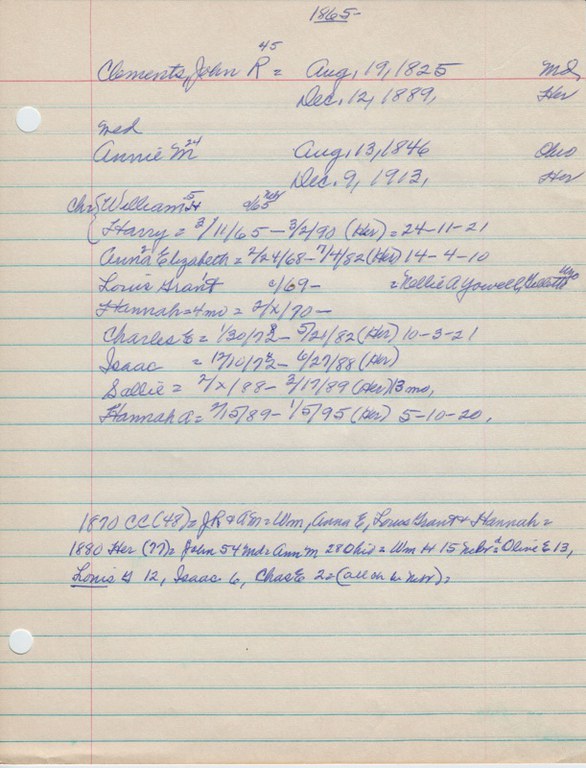 1865-
45
Clements, John R = Aug, 19, 1825 Md,
Dec. 12, 1889, Her
med
Annie M 24 Aug, 13, 1846 Ohio
Dec. 9, 1913, Her
Chr William H 5 c/65 Nebr
Harry = 3/11/65 - 3/2/90 (Her) = 24-11-21
Anna Elizabeth = 2/24/68 - 7/4/82 (Her) 14-4-10
Louis Grant 1 c/69 - = Nellie A Yowell,
Hannah = 4 mo = 2/x/70 -
Charles E = 1/30/72 - 5/21/82 (Her) 10-3-21
Isaac = 12/10/72 - 6/27/88 (Her)
Sallie = 2/x/88 - 3/17/89 (Her) 13 mo,
Hannah A = 2/15/89 - 1/5/95 (Her) 5-10-20,
1870 CC (48) = JR & AM = Wm, Anna E, Louis Grant & Hannah =
1880 Her (77) = John 54 Md = Ann M 28 Ohio = Wm H 15 Nebr = Olive E 13,
Louis G 12, Isaac 6, Chas E 2 = (all ch in Nebr) =